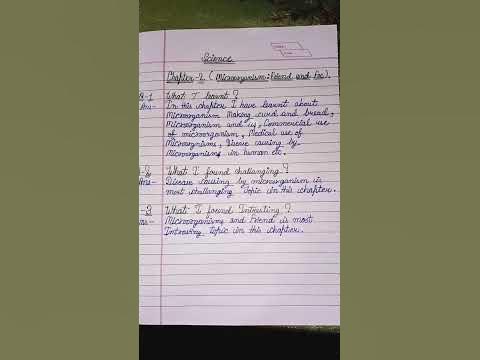 Science
Chapter-2 (Microorganism: Friend and Foe).
Q-1 What I learnt?
Ans- In this chapter I have learnt about
Microorganism Making curd and bread,
Microorganism and us, Commercial use
of microorganism, Medical use of
Microorganisms, Disease causing by
Microorganisms in human etc.
-2 What I found challanging?
Ans- Disease causing by microorganism is
most challanging Topic in this chapter.
-3 What I found Intrusting?
ns- Microorganisms and Friend is most
Intrusting Topic in this chapter.